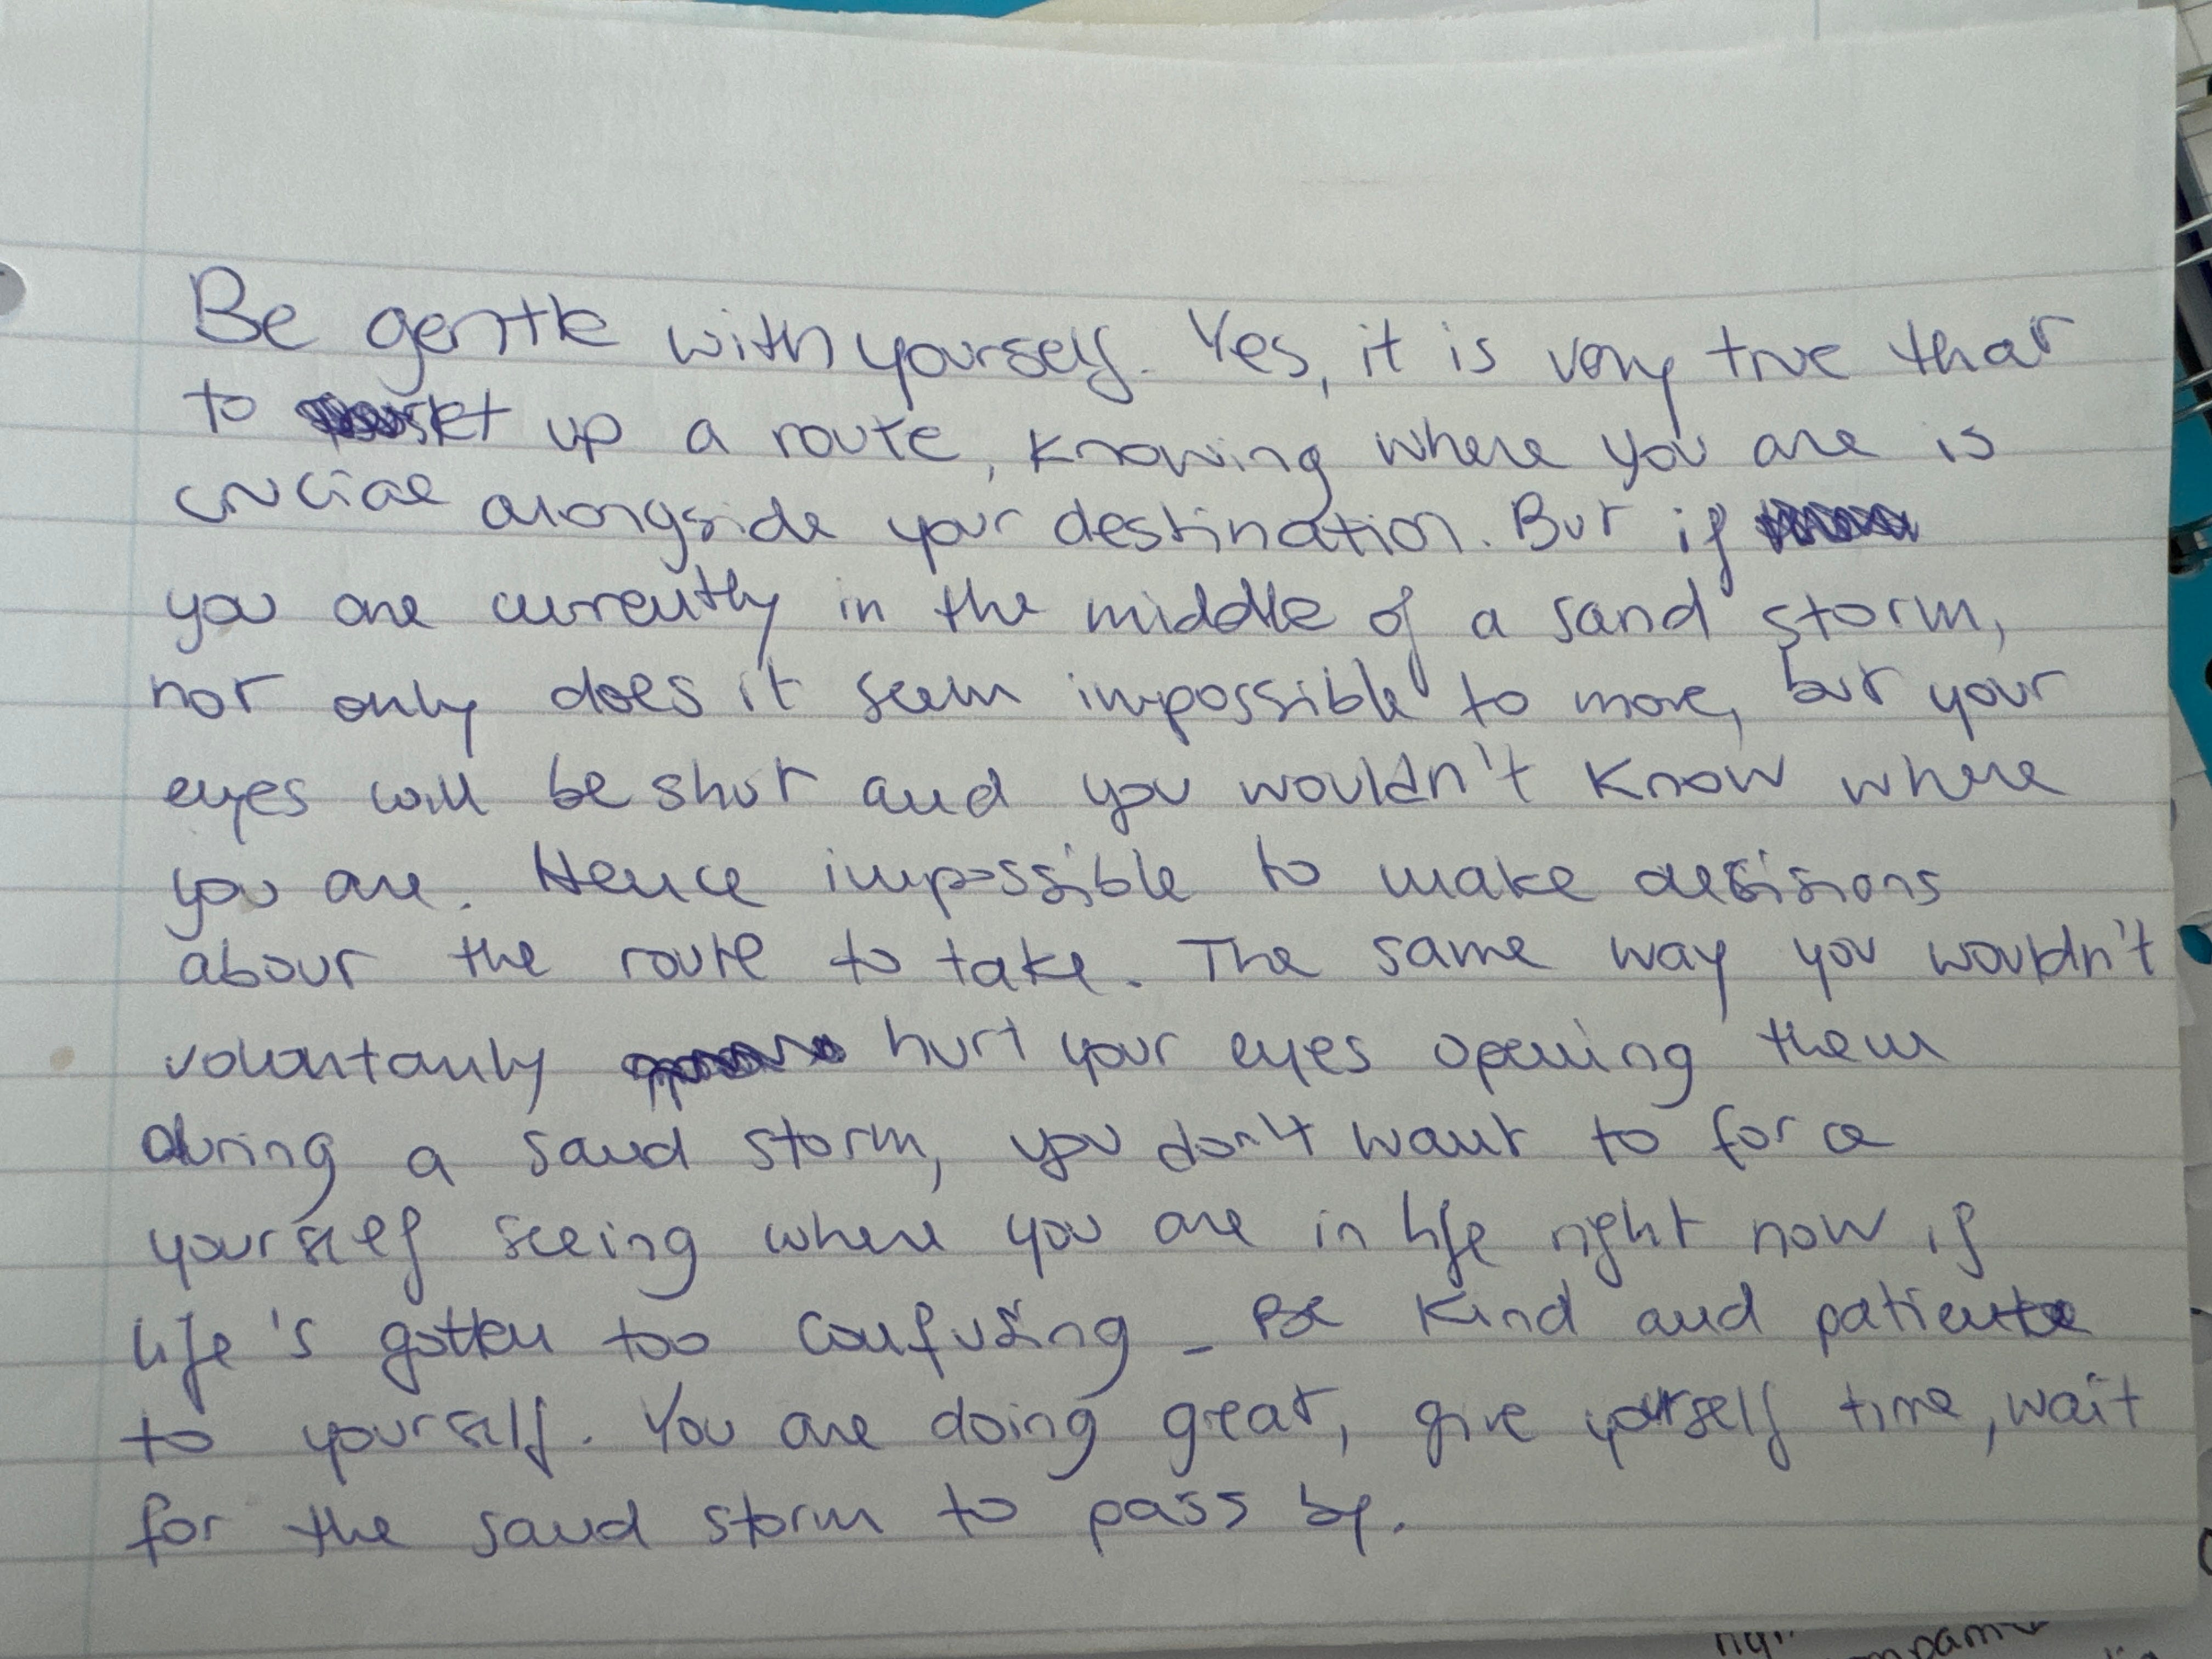 Be gentle with yourself. Yes, it is very true that
to set up a route, knowing where you are is
crucial alongside your destination. But if
you are currently in the middle of a sand storm,
not only does it seem impossible to move, but your
eyes will be shut and you wouldn't know where
you are. Hence impossible to make decisions
about the route to take. The same way you wouldn't
voluntarily hurt your eyes opening them
during a sand storm, you don't want to force
yourself seeing where you are in life right now if
life's gotten too confusing - Be kind and patient
to yourself. You are doing great, give yourself time, wait
for the sand storm to pass by.